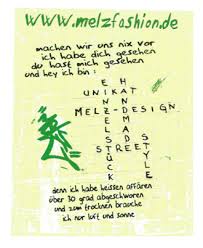 www.melzfashion.de
machen wir uns nix vor
ich habe dich gesehen
du hast mich gesehen
und hey ich bin:
EINZELSTÜCK
HANDMADE
UNIKAT
MELZ-DESIGN
STREET
STYLE
denn ich habe heissen affären
über 30 grad abgeschworen
und zum trocknen brauche
ich nur luft und sonne